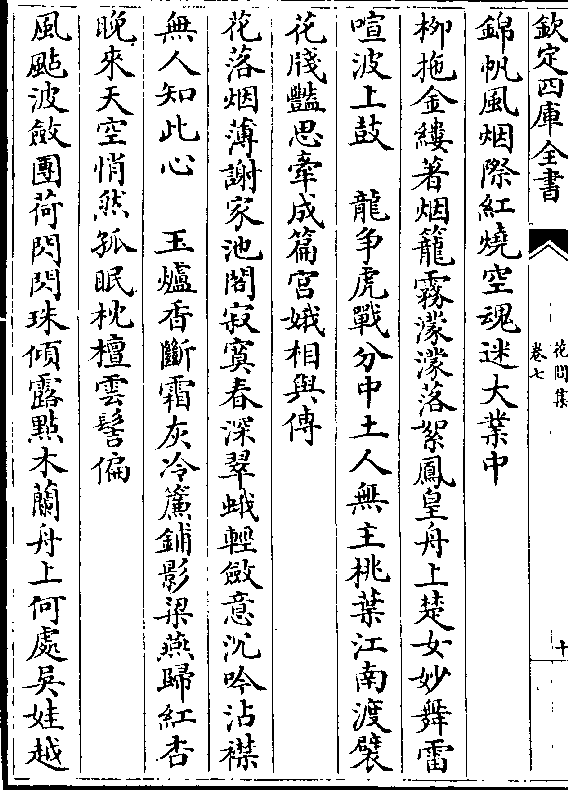 欽定四庫全書
花間集
卷七
十
錦帆風烟際紅燒空魂迷大業中
柳拖金縷著烟籠霧濛濛落絮鳳皇舟上楚女妙舞雷
喧波上鼓　龍争虎戰分中土人無主桃葉江南渡襞
花牋豔思牽成篇宫娥相與傳
花落烟薄謝家池閣寂寞春深翠蛾輕斂意沉吟沾襟
無人知此心　玉爐香斷霜灰冷簾鋪影梁燕歸紅杏
晚來天空悄然孤眠枕檀雲髻偏
風颭波斂團荷閃閃珠傾露點木蘭舟上何處吳娃越